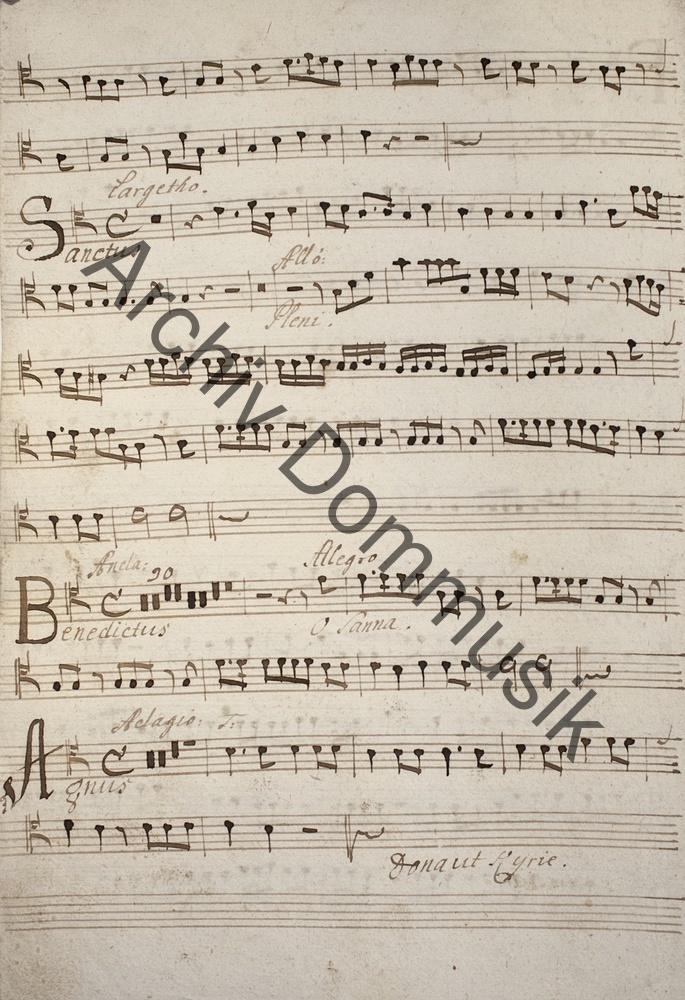 Largetho.
Sanctus
All̊o:
Pleni.
Anda:
90
Allegro
Benedictus
O Sanna.
Adagio: T:
Agnus
Dona ut Kyrie.
Archiv Dommusik